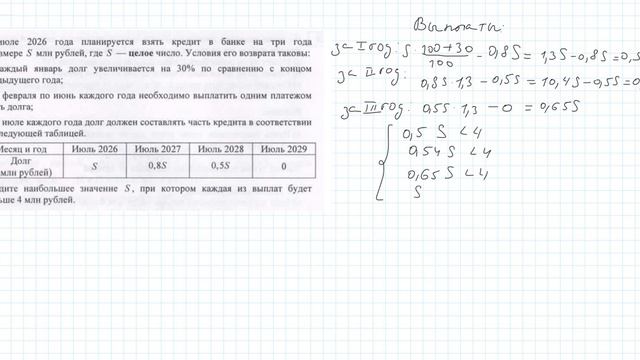 июле 2026 года планируется взять кредит в банке на три года
змере S млн рублей, где S — целое число. Условия его возврата таковы:
аждый январь долг увеличивается на 30% по сравнению с концом
ыдущего года;
февраля по июнь каждого года необходимо выплатить одним платежом
ть долга;
июле каждого года долг должен составлять часть кредита в соответствии
ледующей таблицей.
Месяц и год Июль 2026 Июль 2027 Июль 2028 Июль 2029
Долг
млн рублей) S 0,8S 0,5S 0
дите наибольшее значение S, при котором каждая из выплат будет
ьше 4 млн рублей.
Выплаты:
за I год: S · 100+30/100 - 0,8S = 1,3S - 0,8S = 0,5
за II год: 0,8S · 1,3 - 0,5S = 10,4S - 0,5S = 0
за III год: 0,5S · 1,3 - 0 = 0,65S
0,5 S < 4
0,54 S < 4
0,65 S < 4
S